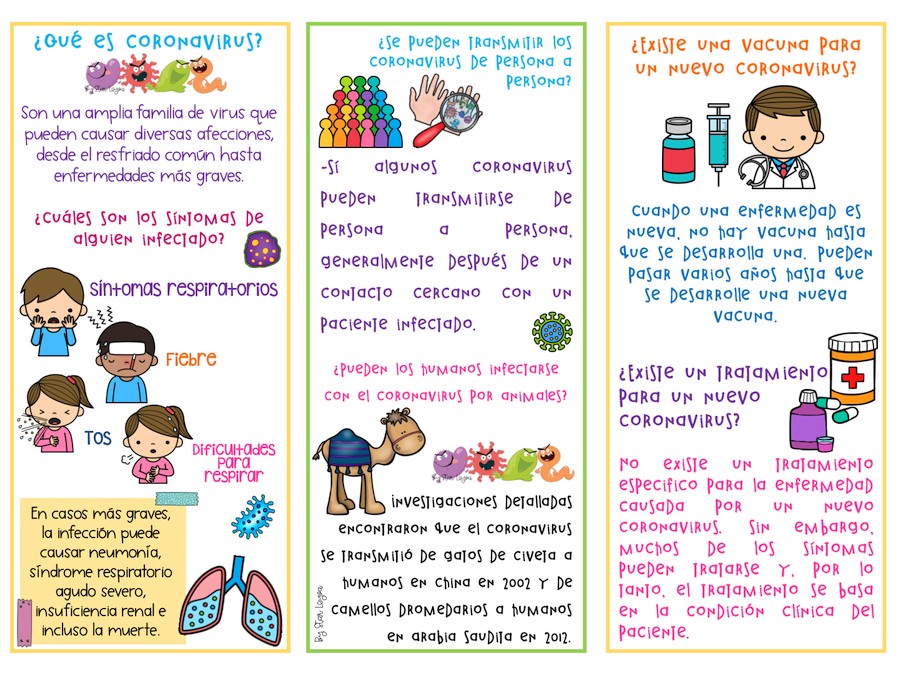 ¿Qué es coronavirus?
By Star Logas
Son una amplia familia de virus que
pueden causar diversas afecciones,
desde el resfriado común hasta
enfermedades más graves.
¿Cuáles son los síntomas de
alguien infectado?
Síntomas respiratorios
Fiebre
Tos
Dificultades
para
respirar
En casos más graves,
la infección puede
causar neumonía,
síndrome respiratorio
agudo severo,
insuficiencia renal e
incluso la muerte.
¿Se pueden transmitir los
coronavirus de persona a
persona?
-Sí algunos coronavirus
pueden transmitirse de
persona a persona,
generalmente después de un
contacto cercano con un
paciente infectado.
¿Pueden los humanos infectarse
con el coronavirus por animales?
Investigaciones detalladas
encontraron que el coronavirus
se transmitió de gatos de civeta a
humanos en China en 2002 y de
camellos dromedarios a humanos
en Arabia Saudita en 2012.
By Star Logas
¿Existe una vacuna para
un nuevo coronavirus?
Cuando una enfermedad es
nueva, no hay vacuna hasta
que se desarrolla una. Pueden
pasar varios años hasta que
se desarrolle una nueva
vacuna.
¿Existe un tratamiento
para un nuevo
coronavirus?
No existe un tratamiento
específico para la enfermedad
causada por un nuevo
coronavirus. Sin embargo,
muchos de los síntomas
pueden tratarse y, por lo
tanto, el tratamiento se basa
en la condición clínica del
paciente.